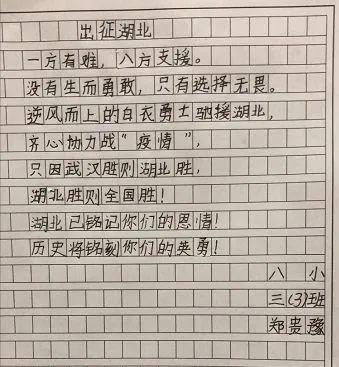 出征湖北
一方有难，八方支援。
没有生而勇敢，只有选择无畏。
逆风而上的白衣勇士驰援湖北，
齐心协力战“疫情”，
只因武汉胜则湖北胜，
湖北胜则全国胜！
湖北已铭记你们的恩情！
历史将铭刻你们的英勇！
八小
三(3)班
郑贵豫